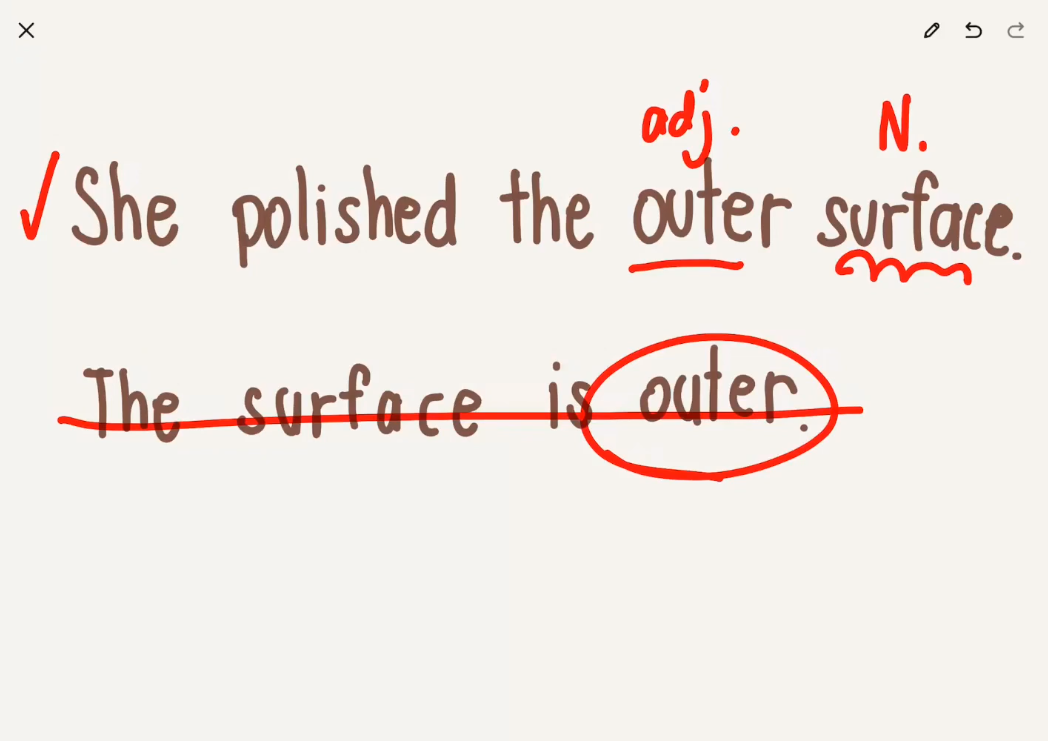 adj. N.
She polished the outer surface.
The surface is outer.